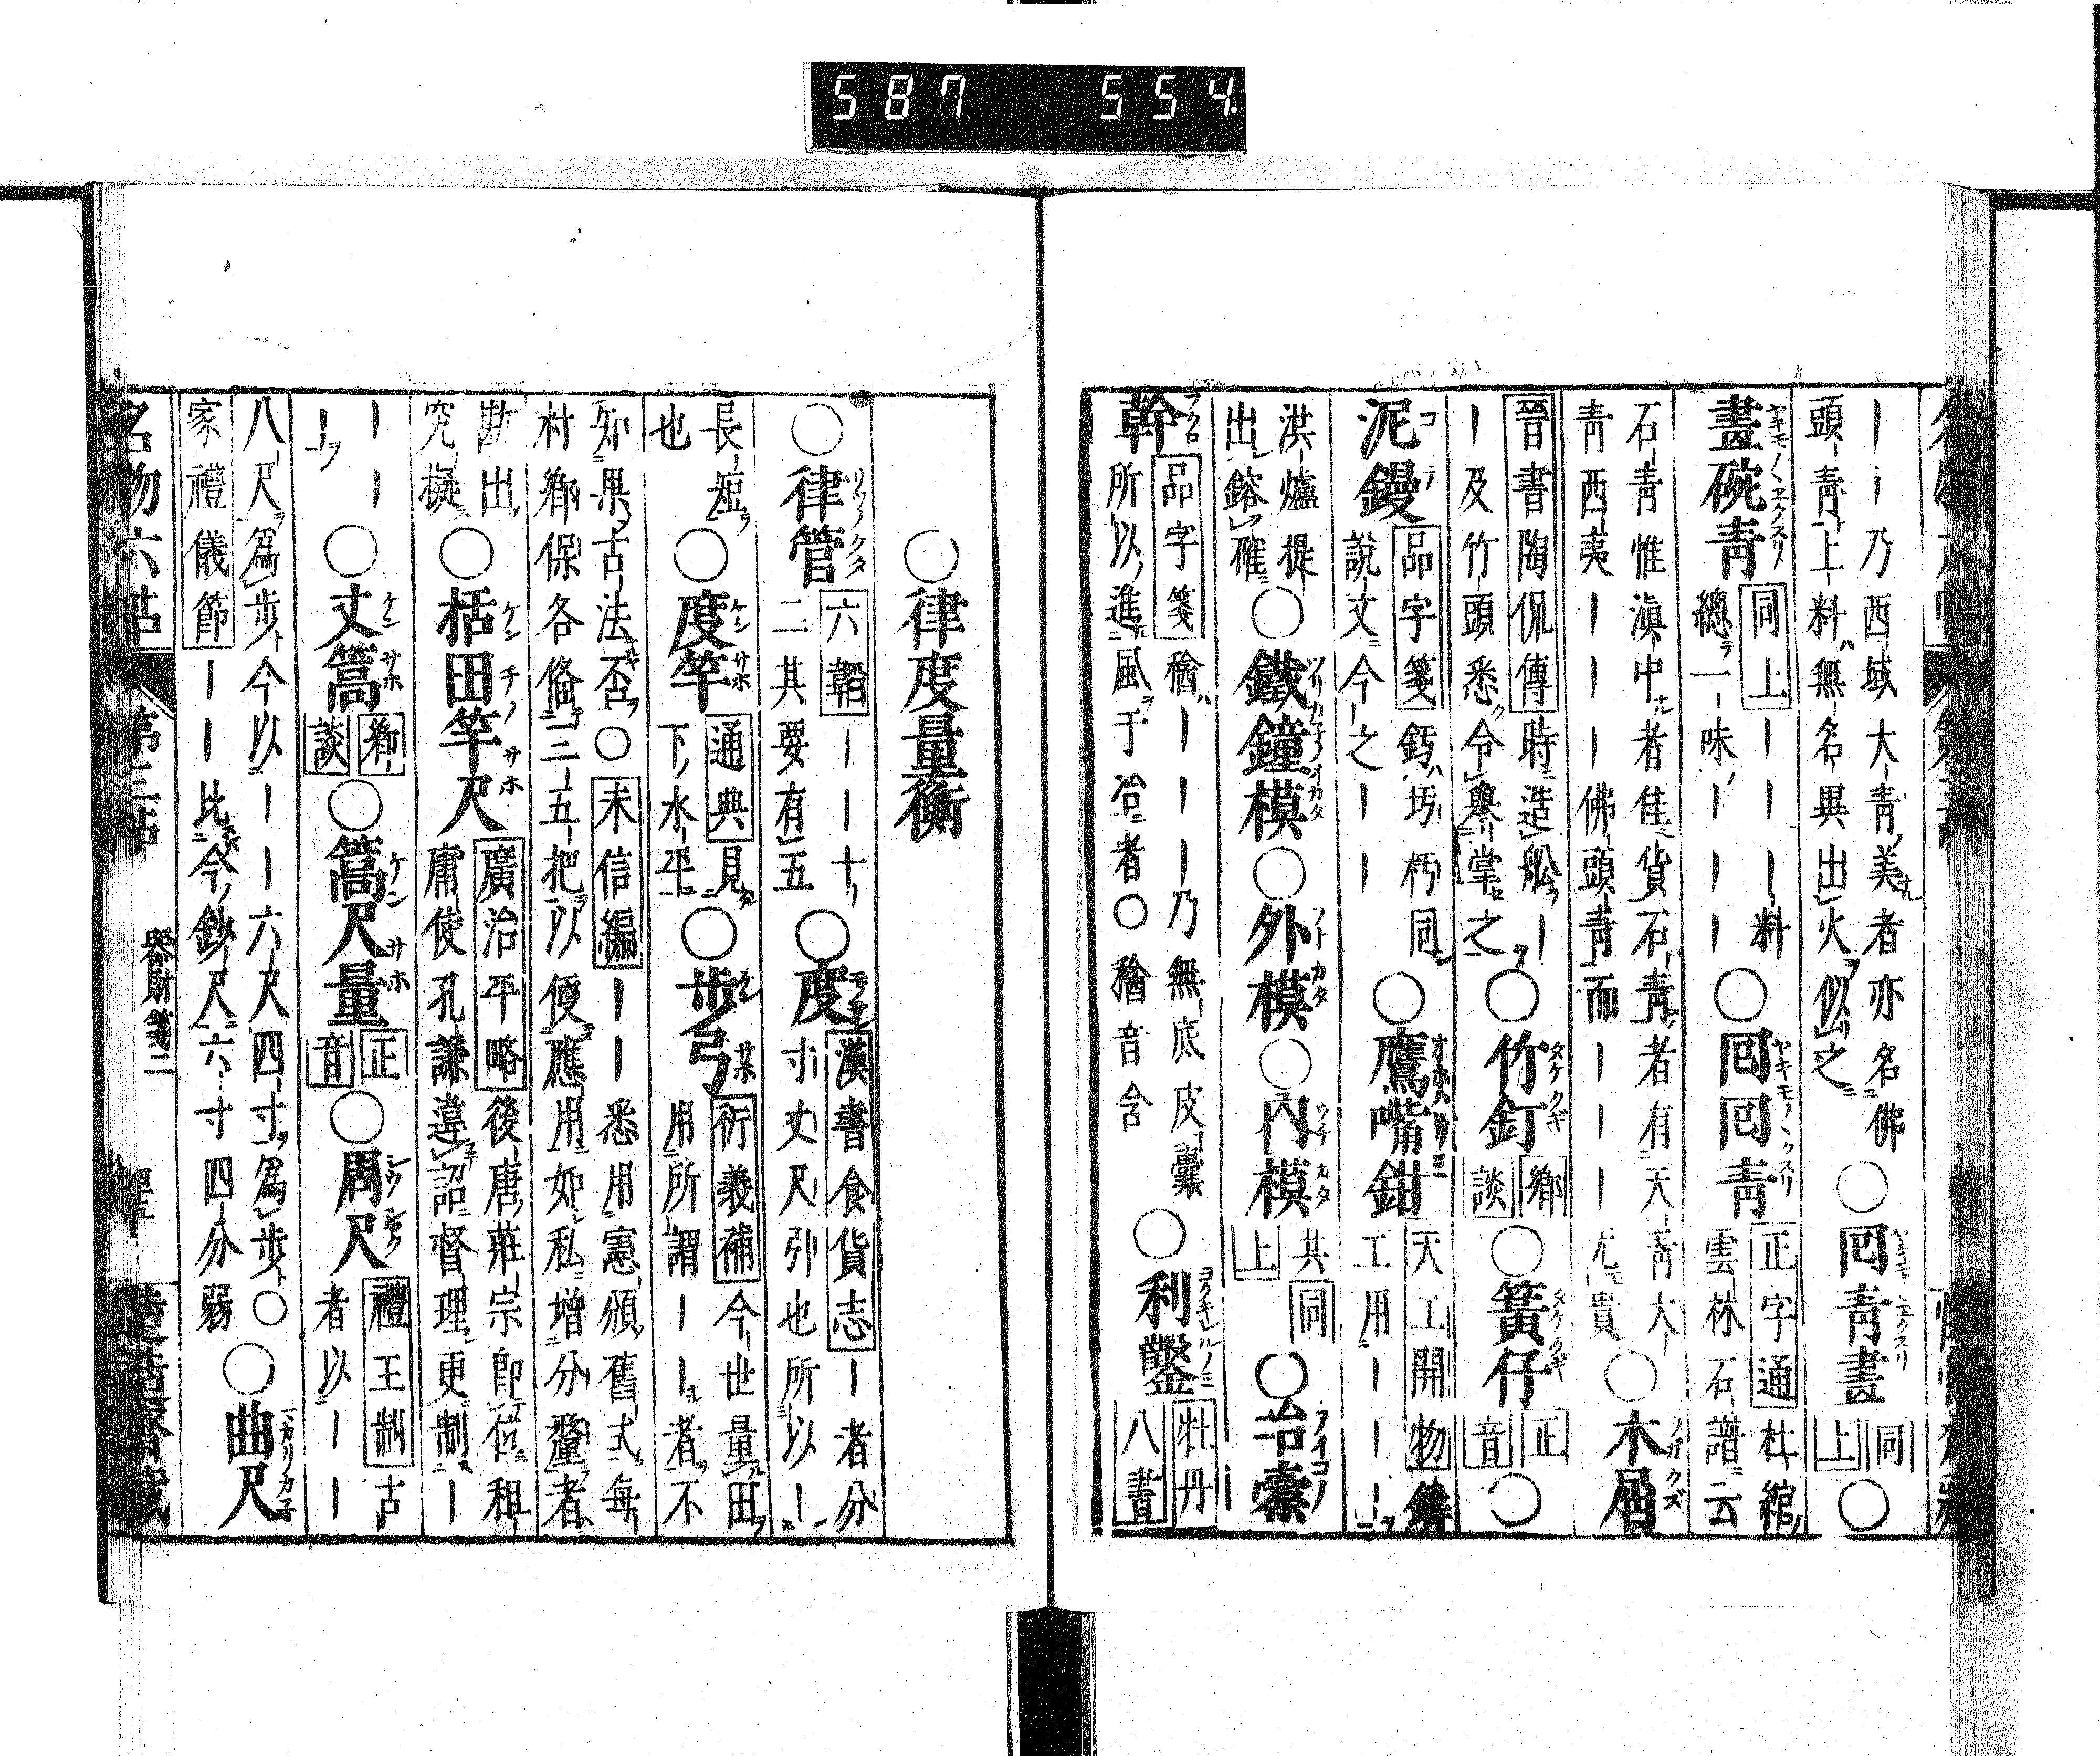 587 554
ーー乃西域大青美者亦名佛
頭青上料無名異出火似之
○回青畫 同上 ○
畫碗青 同上ーーー料
總一味ーーー
○回回青 正字通杜綰
雲林石譜云
石青惟滇中者佳貨石青者有天青大
青西夷ーーー佛頭青而ーーー尤貴
○木屑
晉書陶侃傳時造舩ー
ー及竹頭悉令擧掌之
○竹釘 鄉談
○簧仔 正音 ○
泥鏝 品字箋鎶圬杇同
說文今之ーー
○鷹嘴鉗 天工開物鑄
工用ーーー
洪爐提
出鎔確
○鐵鐘模
○外模
○內模 共同上
○冶橐ー
幹 品字箋䊩ーーー乃無底皮囊
所以進風于冶者○䊩音含
○利鑿 牡丹八書
○律度量衡
○律管 六韜ーー十
二其要有五
○度 漢書食貨志ー者分
寸丈尺引也所以ー
長短
也
○度竿 通典見
下水平
○步弓 衍義補今世量田
用所謂ーー者不
知果古法否○未信編ーー悉用憲頒舊式每
村鄉保各備三五把以便應用如私增分釐者
勘出
究擬
○栝田竿尺 廣治平略後唐莊宗即位租
庸使孔謙違詔督理更制ー
ーー
ー
○丈篙 鄉談
○篙尺量 正音
○周尺 禮王制古
者以ーー
八尺為步今以ーー六尺四寸為步○
家禮儀節ーー比今鈔尺六寸四分弱
○曲尺
名物六帖 第三帖 器財箋二